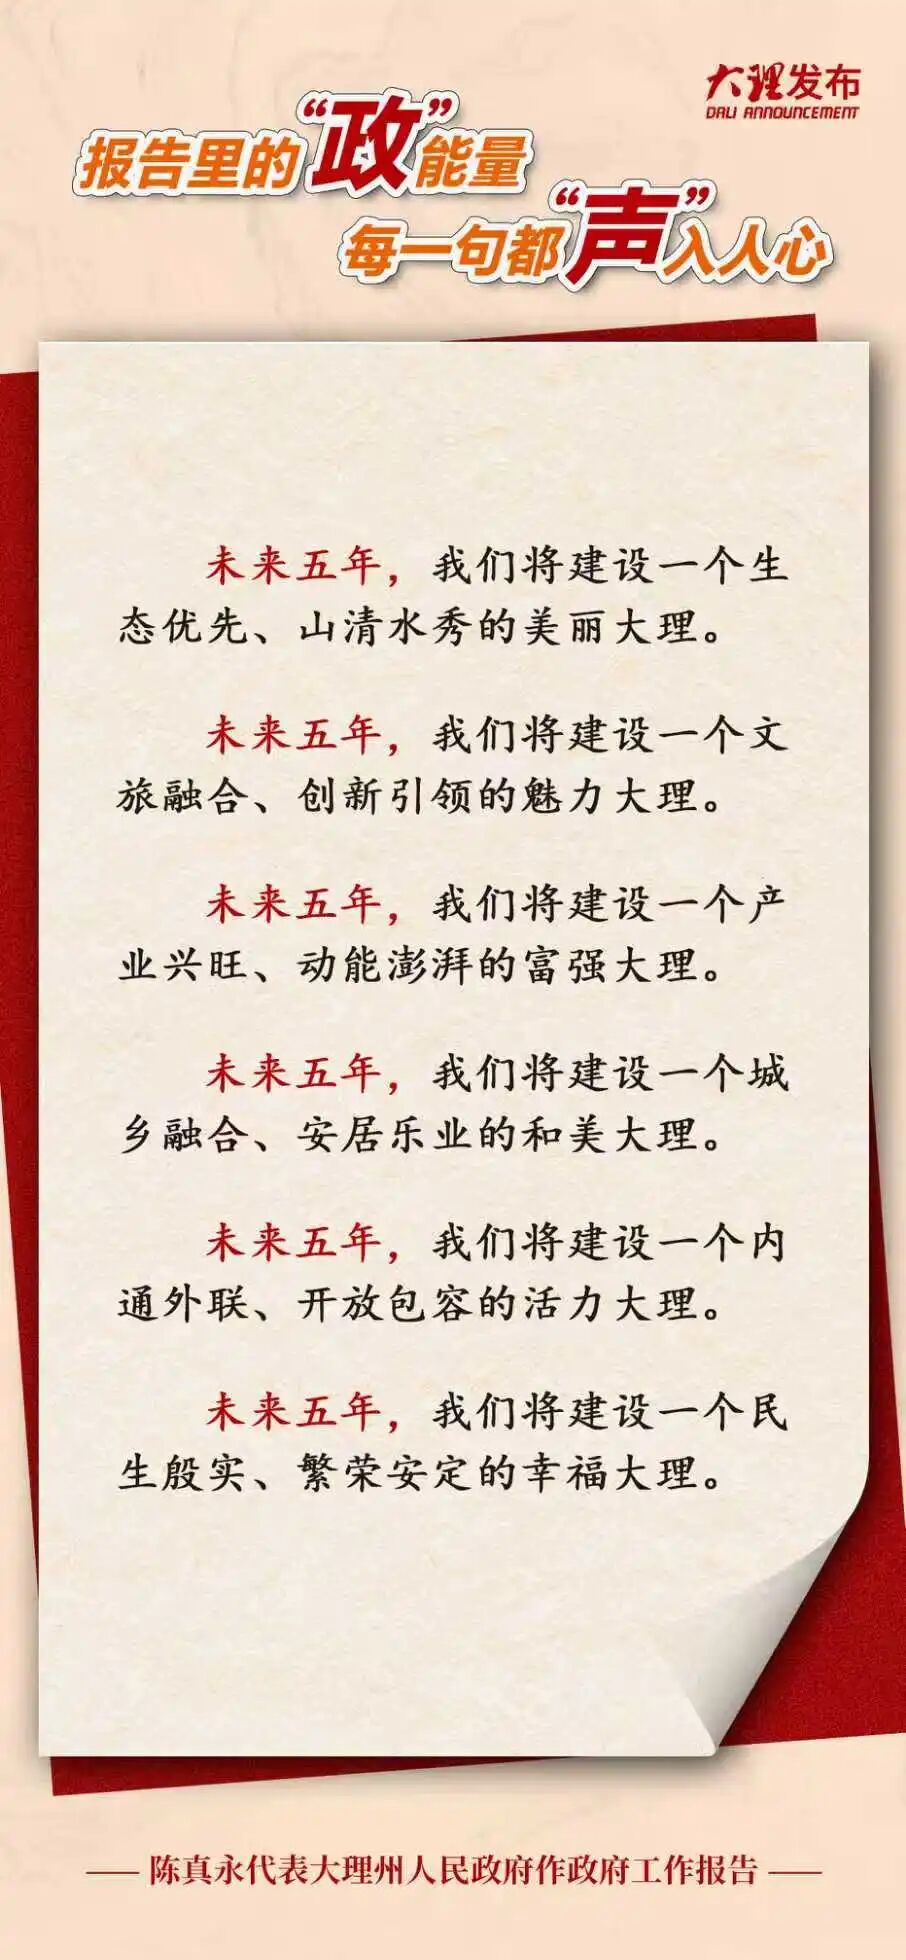 大理发布
DALI ANNOUNCEMENT
报告里的“政”能量
每一句都“声”入人心
未来五年，我们将建设一个生
态优先、山清水秀的美丽大理。
未来五年，我们将建设一个文
旅融合、创新引领的魅力大理。
未来五年，我们将建设一个产
业兴旺、动能澎湃的富强大理。
未来五年，我们将建设一个城
乡融合、安居乐业的和美大理。
未来五年，我们将建设一个内
通外联、开放包容的活力大理。
未来五年，我们将建设一个民
生殷实、繁荣安定的幸福大理。
—— 陈真永代表大理州人民政府作政府工作报告 ——